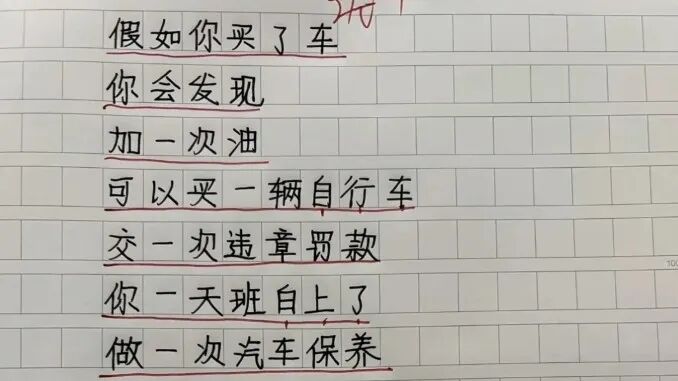 假如你买了车
你会发现
加一次油
可以买一辆自行车
交一次违章罚款
你一天班白上了
做一次汽车保养